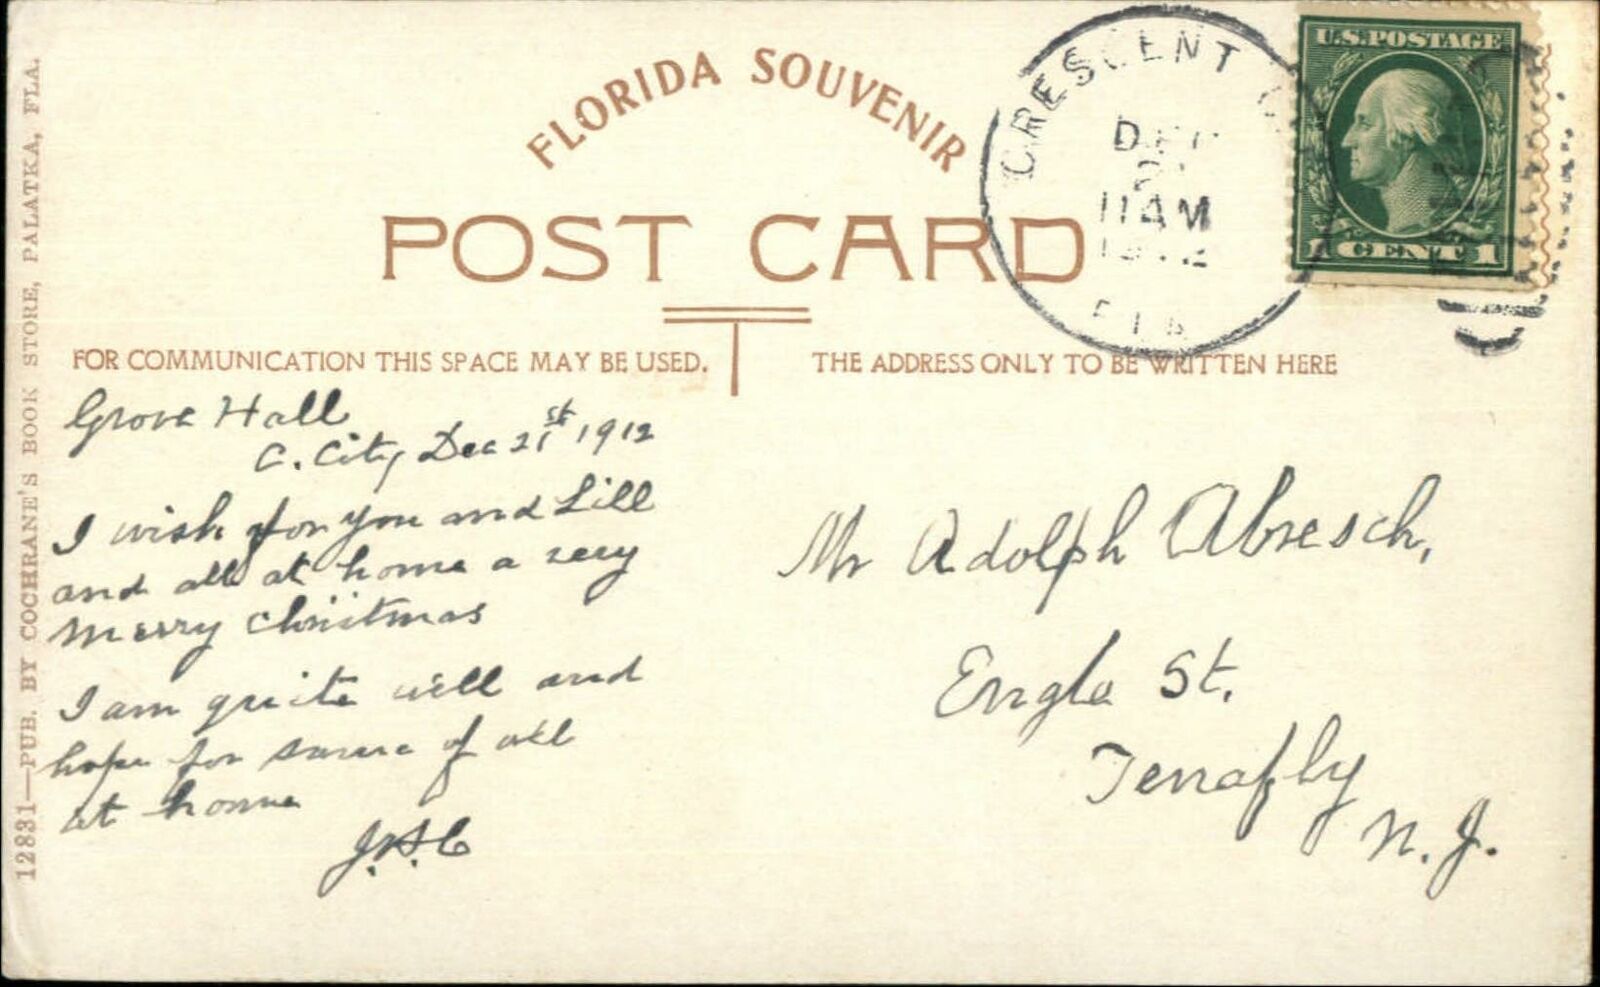 FLORIDA SOUVENIR
POST CARD
CRESCENT C
DEC
11 AM
1912
FLA
U.S. POSTAGE
1 CENT 1
FOR COMMUNICATION THIS SPACE MAY BE USED.
THE ADDRESS ONLY TO BE WRITTEN HERE
Grove Hall
C. City Dec 21st 1912
I wish for you and Lill
and all at home a very
Merry Christmas
I am quite well and
hope for same of all
at home
Mr Adolph Abresch,
Engle St.
Tenafly
N. J.
12831—PUB. BY COCHRANE'S BOOK STORE, PALATKA, FLA.